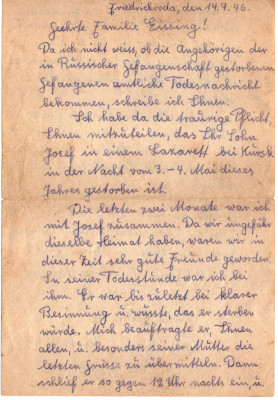 Friedrichroda, den 14.9.46.
Geehrte Familie Eissing!
Da ich nicht weiss, ob die Angehörigen der
in Russischer Gefangenschaft gestorbenen
Gefangenen amtliche Todesnachricht
bekommen, schreibe ich Ihnen.
Ich habe da die traurige Pflicht,
Ihnen mitzuteilen, das Ihr Sohn
Josef in einem Lazarett bei Kursk
in der Nacht vom 3.-4. Mai dieses
Jahres gestorben ist.
Die letzten zwei Monate war ich
mit Josef zusammen. Da wir ungefähr
dieselbe Heimat haben, waren wir in
dieser Zeit sehr gute Freunde geworden.
In seiner Todesstunde war ich bei
ihm. Er war bis zuletzt bei klarer
Besinnung u. wusste, das er sterben
würde. Mich beauftragte er, Ihnen
allen, u. besonders seiner Mutter die
letzten Grüsse zu übermitteln. Dann
schlief er so gegen 12 Uhr nachts ein, u.